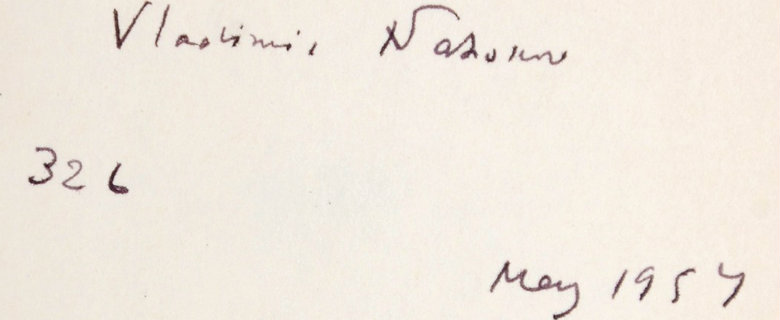 Vladimir Nabokov
326
May 1957